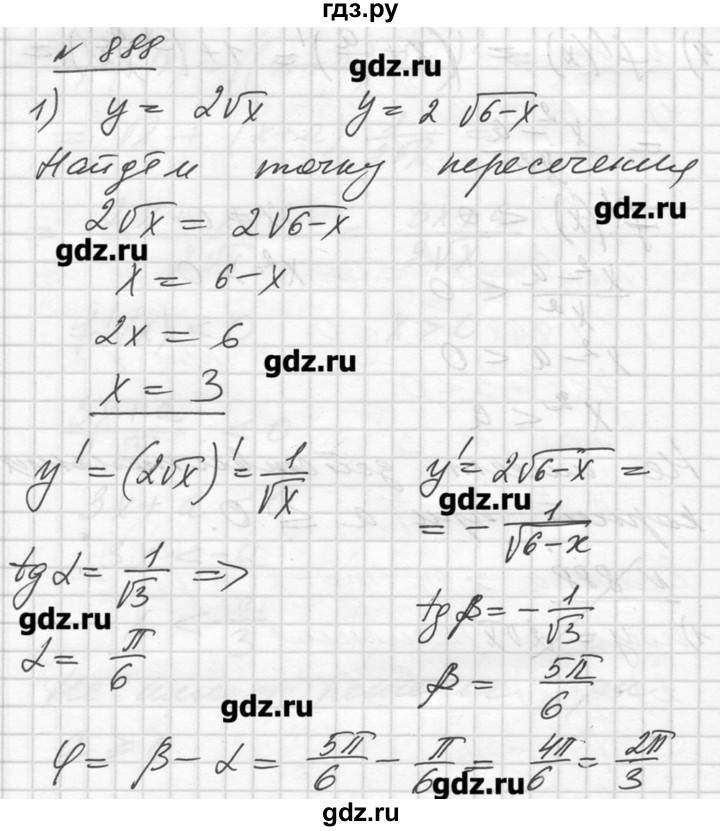 гдз.ру
№ 888
gdz.ru
1) y = 2√x y = 2 √6-x
Найдём точку пересечения
gdz.ru
2√x = 2√6-x
gdz.ru
x = 6-x
2x = 6
gdz.ru
x = 3
y' = (2√x)' = 1/√x
y' = 2√6-x =
gdz.ru
= - 1/√6-x
tg α = 1/√3 =>
gdz.ru
tg β = - 1/√3
α = π/6
β = 5π/6
gdz.ru
φ = β - α = 5π/6 - π/6 = 4π/6 = 2π/3
gdz.ru
gdz.ru